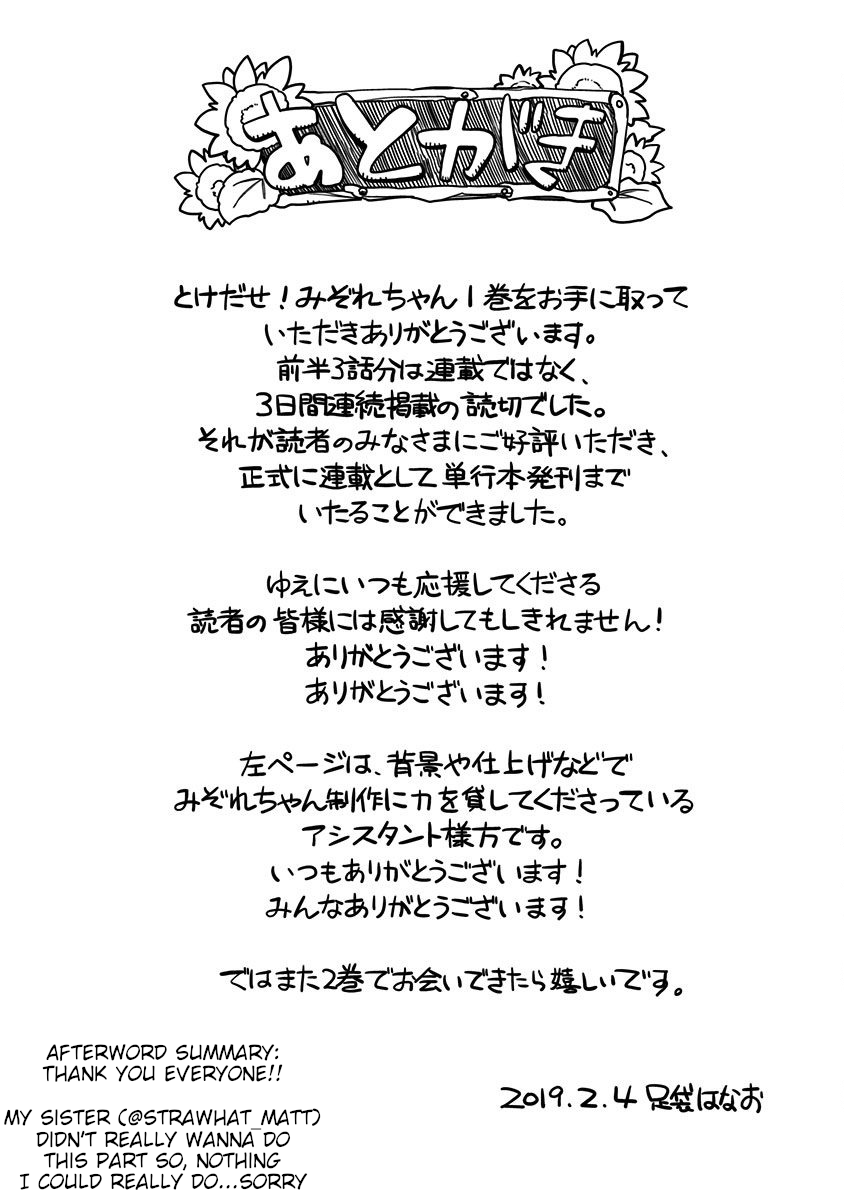 あとがき
とけだせ！みぞれちゃん1巻をお手に取って
いただきありがとうございます。
前半3話分は連載ではなく、
3日間連続掲載の読切でした。
それが読者のみなさまにご好評いただき、
正式に連載として単行本発刊まで
いたることができました。
ゆえにいつも応援してくださる
読者の皆様には感謝してもしきれません！
ありがとうございます！
ありがとうございます！
左ページは、背景や仕上げなどで
みぞれちゃん制作に力を貸してくださっている
アシスタント様方です。
いつもありがとうございます！
みんなありがとうございます！
ではまた2巻でお会いできたら嬉しいです。
2019.2.4 足袋はなお
AFTERWORD SUMMARY:
THANK YOU EVERYONE!!
MY SISTER (@STRAWHAT_MATT)
DIDN'T REALLY WANNA DO
THIS PART SO, NOTHING
I COULD REALLY DO...SORRY